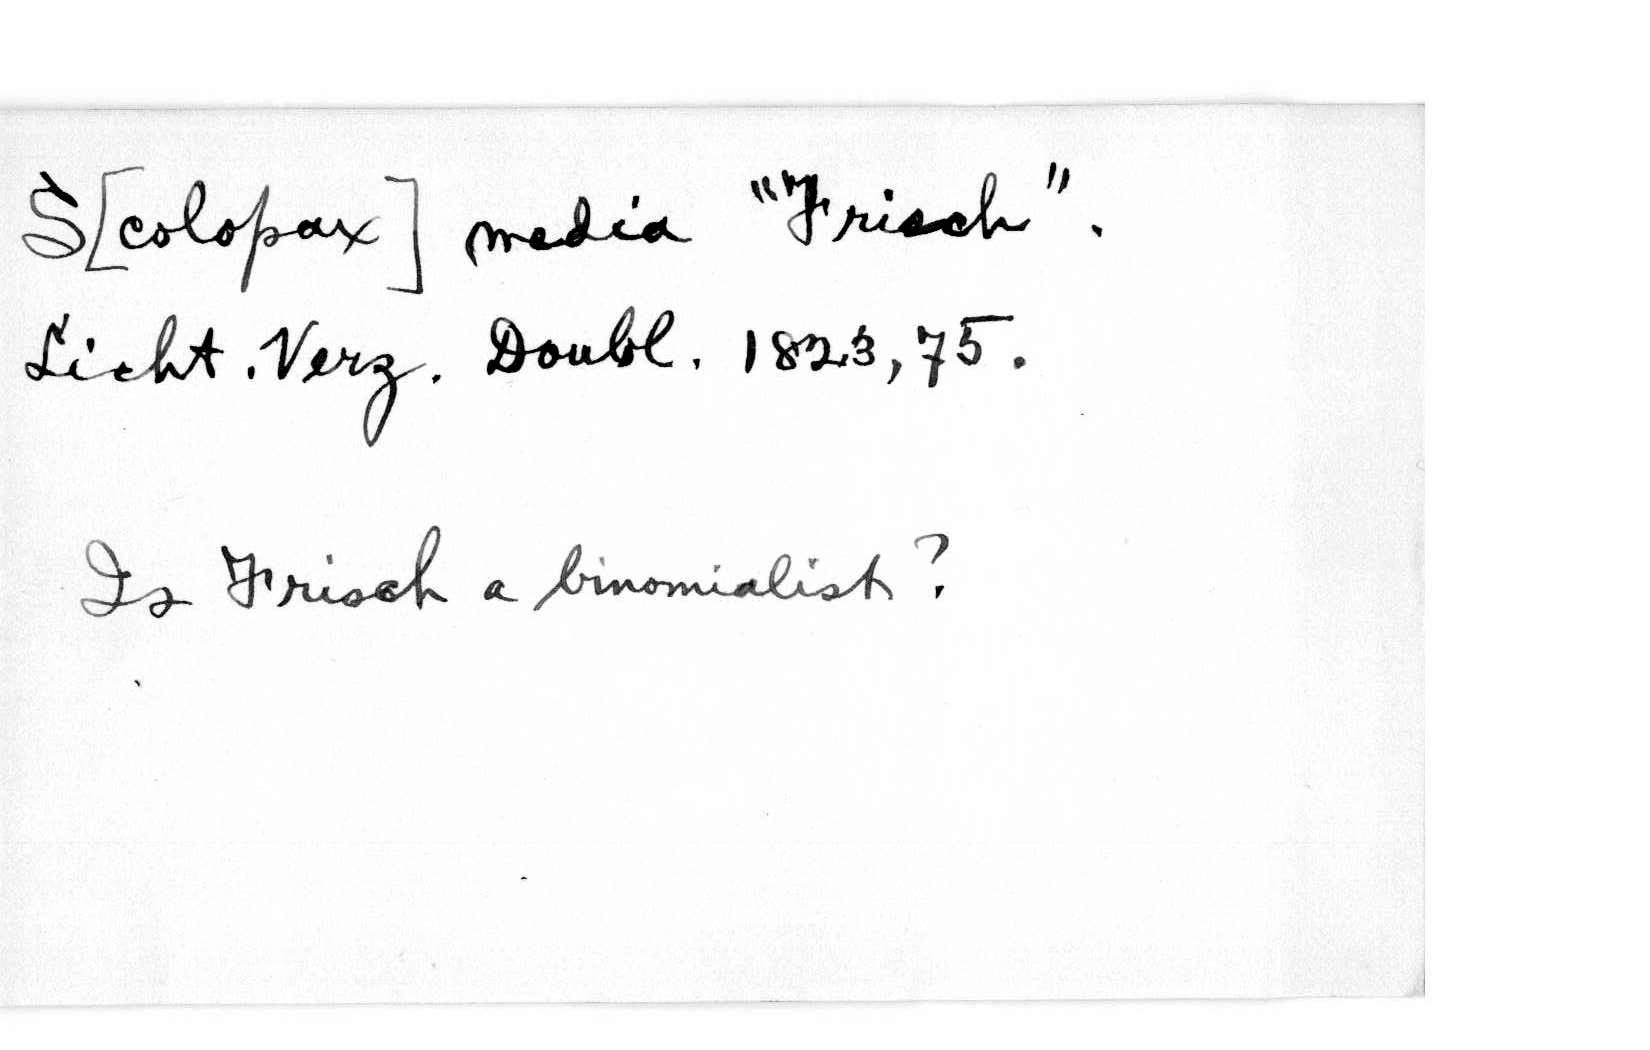 S[colopax] media "Frisch".
Licht. Verz. Doubl. 1823, 75.
Is Frisch a binomialist?